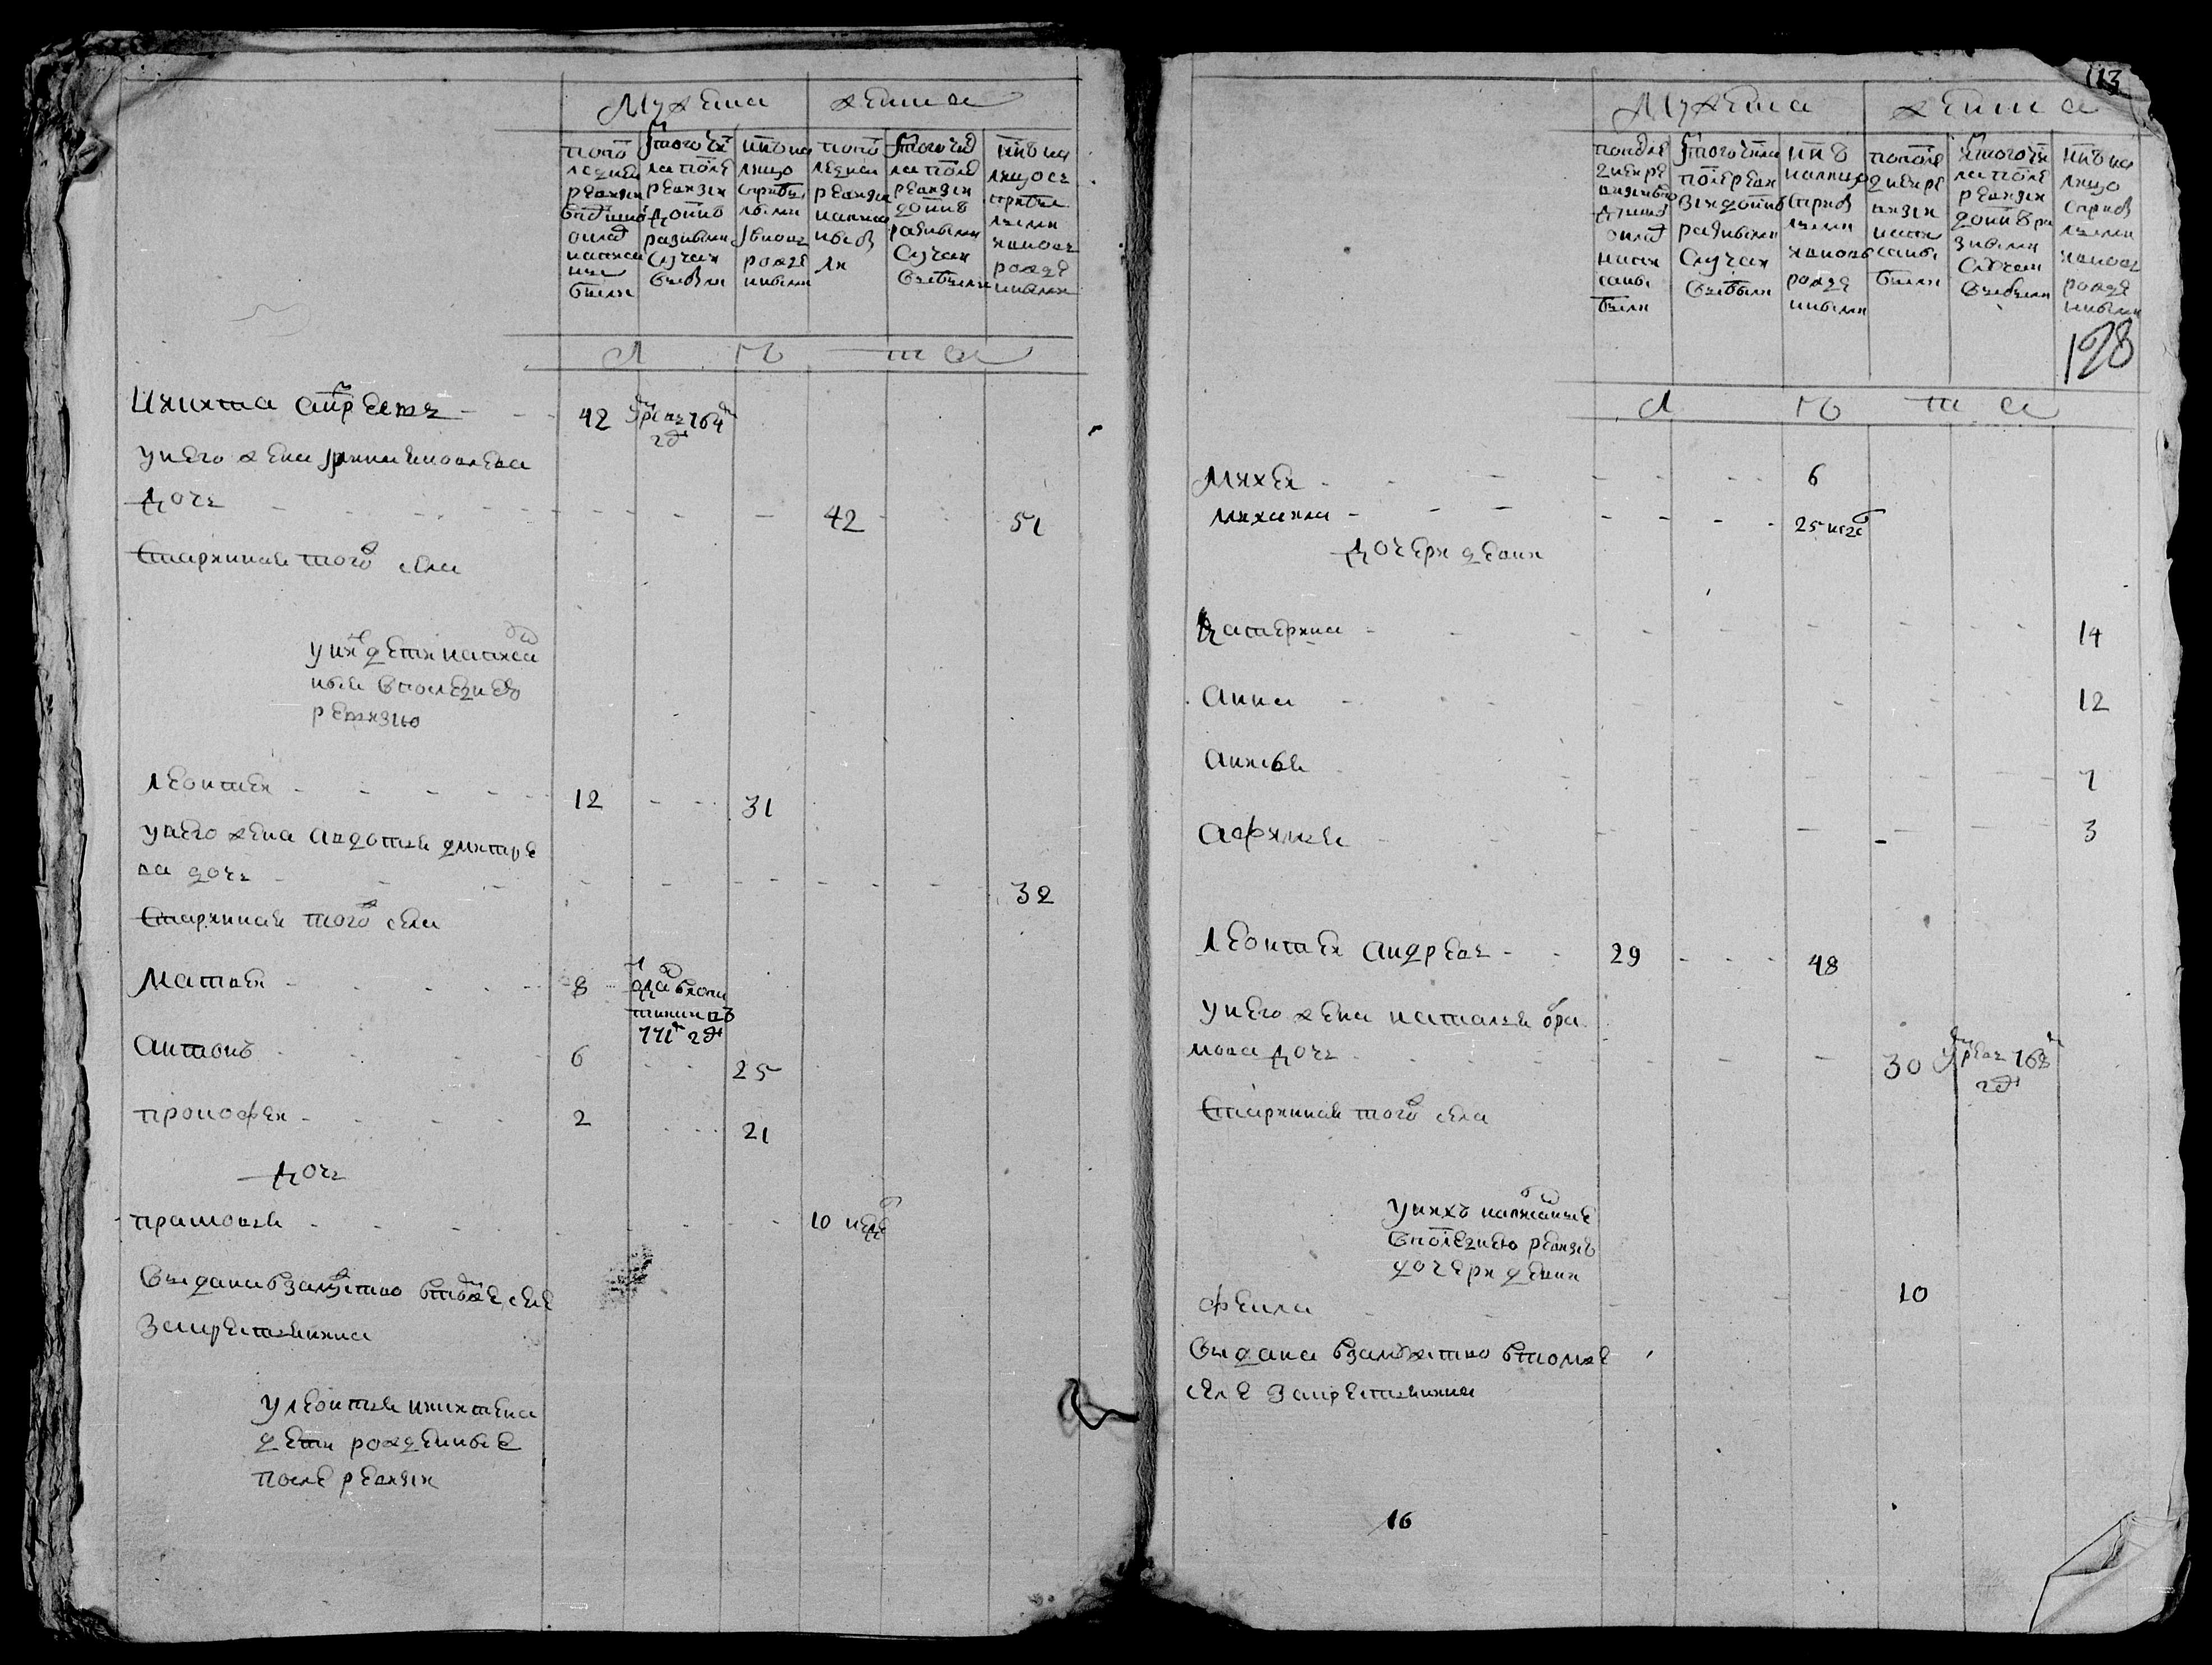 Мужеска женска
По по
следней
ревизии
в подушной
оклад
написа
ны
были
Из того чи
ла после
ревизии
до ныне
разными
случаи
выбыли
Ныне на
лицо
с прибы
лыми
и вновь
рожде
ными
По по
следней
ревизии
написа
ны бы
ли
Из того чи
ла после
ревизии
до ныне
разными
случаи
выбыли
Ныне на
лицо с
прибы
лыми
и вновь
рожде
ными
л ѣ т а
Никита Андреевъ 42 умре въ 764м
гд
у него жена Ирина Яковлева
дочь 42 51
старинная того ж села
у них дети написа
ные в последнею
ревизию
Леонтей 12 31
у него жена Авдотья Дмитре
ва дочь 32
старинная того ж села
Матвей 8 отдан в рекруты
771м гд
Антонъ 6 25
Прокофей 2 21
дочь
Прасковья 10 недель
выдана в замужство в том же селе
за крестьянина
у Леонтья Никитина
дети рожденные
после ревизии
113
Мужеска женска
128
л ѣ т а
Михей 6
Михайла 25 нед
дочери девки
Катерина 14
Анна 12
Анисья 7
Афимья 3
Леонтей Андреевъ 29 48
у него жена Наталья Абра
мова дочь 30 умре въ 768м
гд
старинная того ж села
у нихъ написаные
в последнею ревизию
дочери девки
Фекла 10
выдана в замужство в том же
селе за крестьянина
16